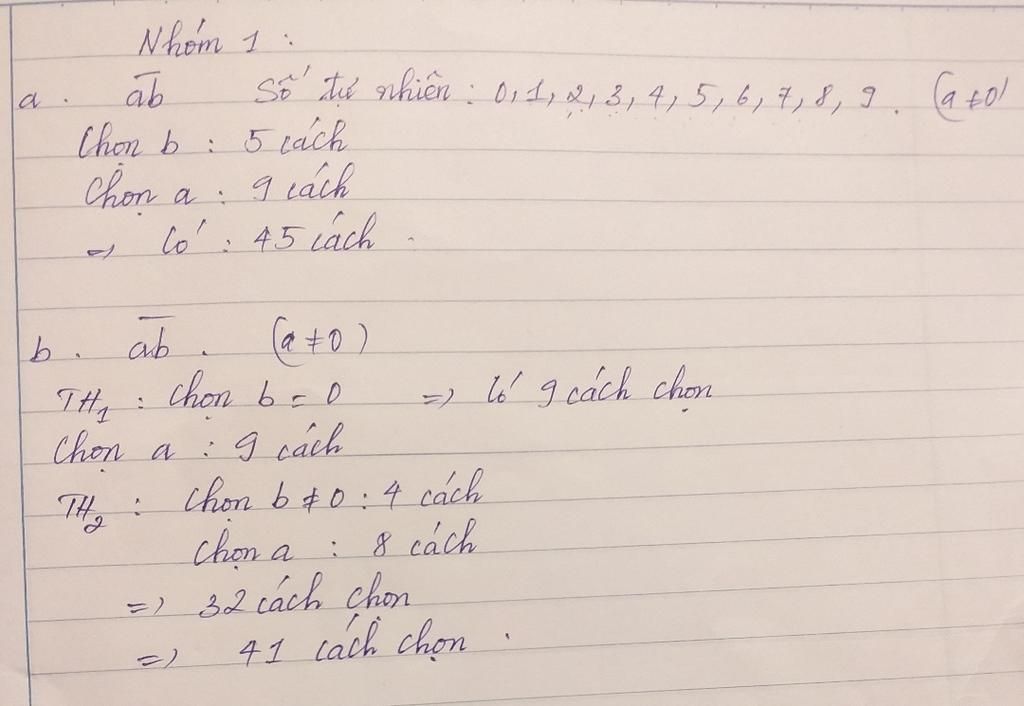 Nhóm 1 :
a. ab Số tự nhiên : 0, 1, 2, 3, 4, 5, 6, 7, 8, 9. (a ≠ 0)
Chọn b : 5 cách
Chọn a : 9 cách
=> Có : 45 cách.
b. ab. (a ≠ 0)
TH1 : Chọn b = 0 => Có 9 cách chọn
Chọn a : 9 cách
TH2 : Chọn b ≠ 0 : 4 cách
Chọn a : 8 cách
=> 32 cách chọn
=> 41 cách chọn.